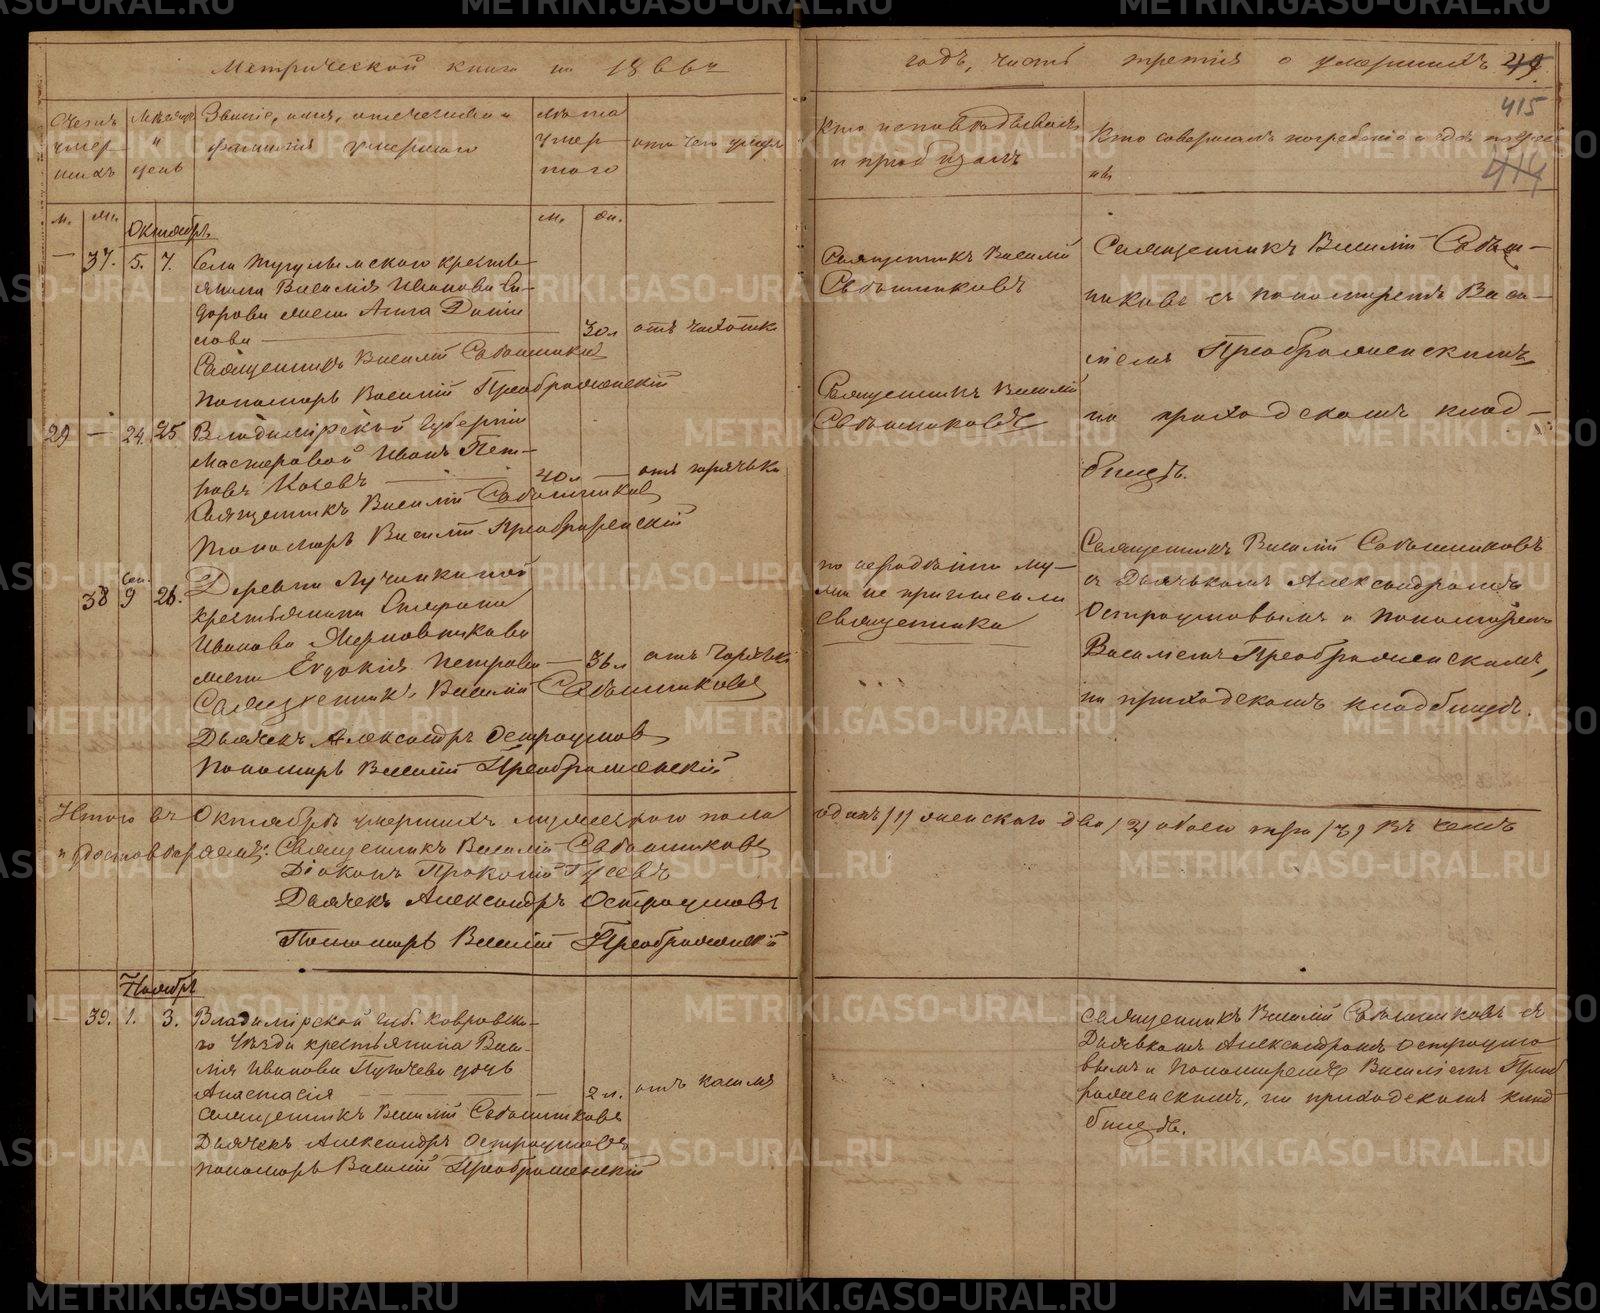 Метрической книги на 1866й
годъ, часть третія о умершихъ 219.
415
414
Счетъ умер- шихъ
Мѣсяцъ и день
Званіе, имя, отчество и
фамилія умершаго
лѣта
умер-
шаго
отъ чего умеръ
Кто исповѣдывалъ
и пріобщалъ
Кто совершалъ погребеніе и гдѣ погребе-
ны
м. ж.
м. ж.
Октябрь
— 37. 5. 7.
Села крестья-
нина Василія Иванова Си-
дорова жена Анна
30 л отъ чахотки
Священникъ Василій Сабашниковъ
Пономарь Василій Преображенскій
Священникъ Василій
Сабашниковъ
Священникъ Василій Сабаш-
никовъ съ пономаремъ Васи-
ліемъ Преображенскимъ
на приходскомъ клад-
бищѣ.
29 — 24. 25.
Владимірской Губерніи
Мастеровой Иванъ Пет-
ровъ
40 л — отъ горячки
Священникъ Василій Сабашниковъ
Пономарь Василій Преображенскій
Священникъ Василій
Сабашниковъ
38 9 26.
Деревни
крестьянина
Иванова
жена Евдокія Петрова — 36 л отъ горячки
Священникъ Василій Сабашниковъ
Дьячекъ Александръ Остроумовъ
Пономарь Василій Преображенскій
по нерадѣнію му-
жа не пригласили
священника
Священникъ Василій Сабашниковъ
съ Дьячкомъ Александромъ
Остроумовымъ и Пономаремъ
Василіемъ Преображенскимъ,
на приходскомъ кладбищѣ.
Итого въ Октябрѣ умершихъ мужескаго пола
одинъ /1/ женскаго два /2/ обоего три /3/ въ чемъ
и удостовѣряемъ: Священникъ Василій Сабашниковъ
Діаконъ Прокопій Гусевъ
Дьячекъ Александръ Остроумовъ
Пономарь Василій Преображенскій
Ноябрь
— 39. 1. 3.
Владимірской губ. Ковровска-
го Уѣзда крестьянина Васи-
лія Иванова Пугачева дочь
Анастасія
2 л. отъ кашля
Священникъ Василій Сабашниковъ
Дьячекъ Александръ Остроумовъ
Пономарь Василій Преображенскій
Священникъ Василій Сабашниковъ съ
Дьячкомъ Александромъ Остроумо-
вымъ и Пономаремъ Василіемъ Преоб-
раженскимъ, на приходскомъ клад-
бищѣ.
METRIKI.GASO-URAL.RU